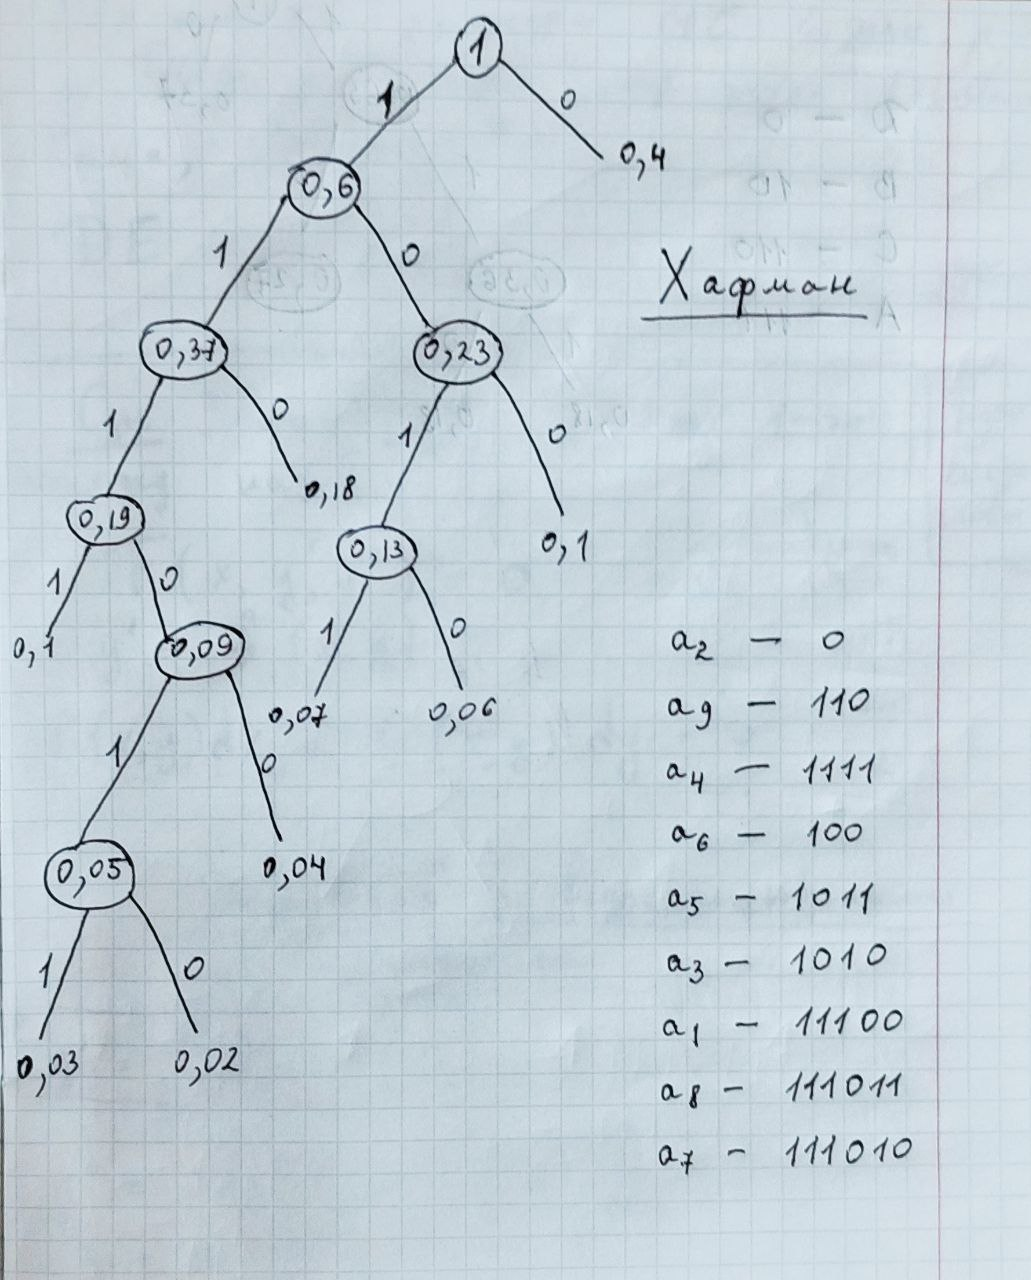 1
1 0
0,4
0,6
1 0
Хафман
0,37 0,23
1 0 1 0
0,18
0,19 0,13 0,1
1 0 1 0
0,1 0,09 0,07 0,06
1 0
0,05 0,04
1 0
0,03 0,02
a2 — 0
a9 — 110
a4 — 1111
a6 — 100
a5 — 1011
a3 — 1010
a1 — 11100
a8 — 111011
a7 — 111010